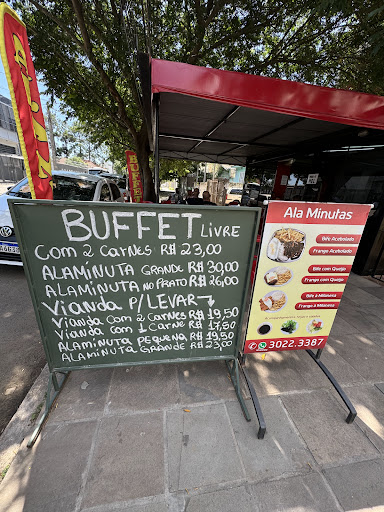 BUFFET LIVRE
COM 2 CARNES R$ 23,00
ALAMINUTA GRANDE R$ 30,00
ALAMINUTA NO PRATO R$ 26,00
VIANDA P/ LEVAR
VIANDA COM 2 CARNES R$ 19,50
VIANDA COM 1 CARNE R$ 17,50
ALAMINUTA PEQUENA R$ 19,50
ALAMINUTA GRANDE R$ 23,00
Ala Minutas
Bife Acebolado
Frango Acebolado
Bife com Queijo
Frango com Queijo
Bife à Milanesa
Frango à Milanesa
3022.3387